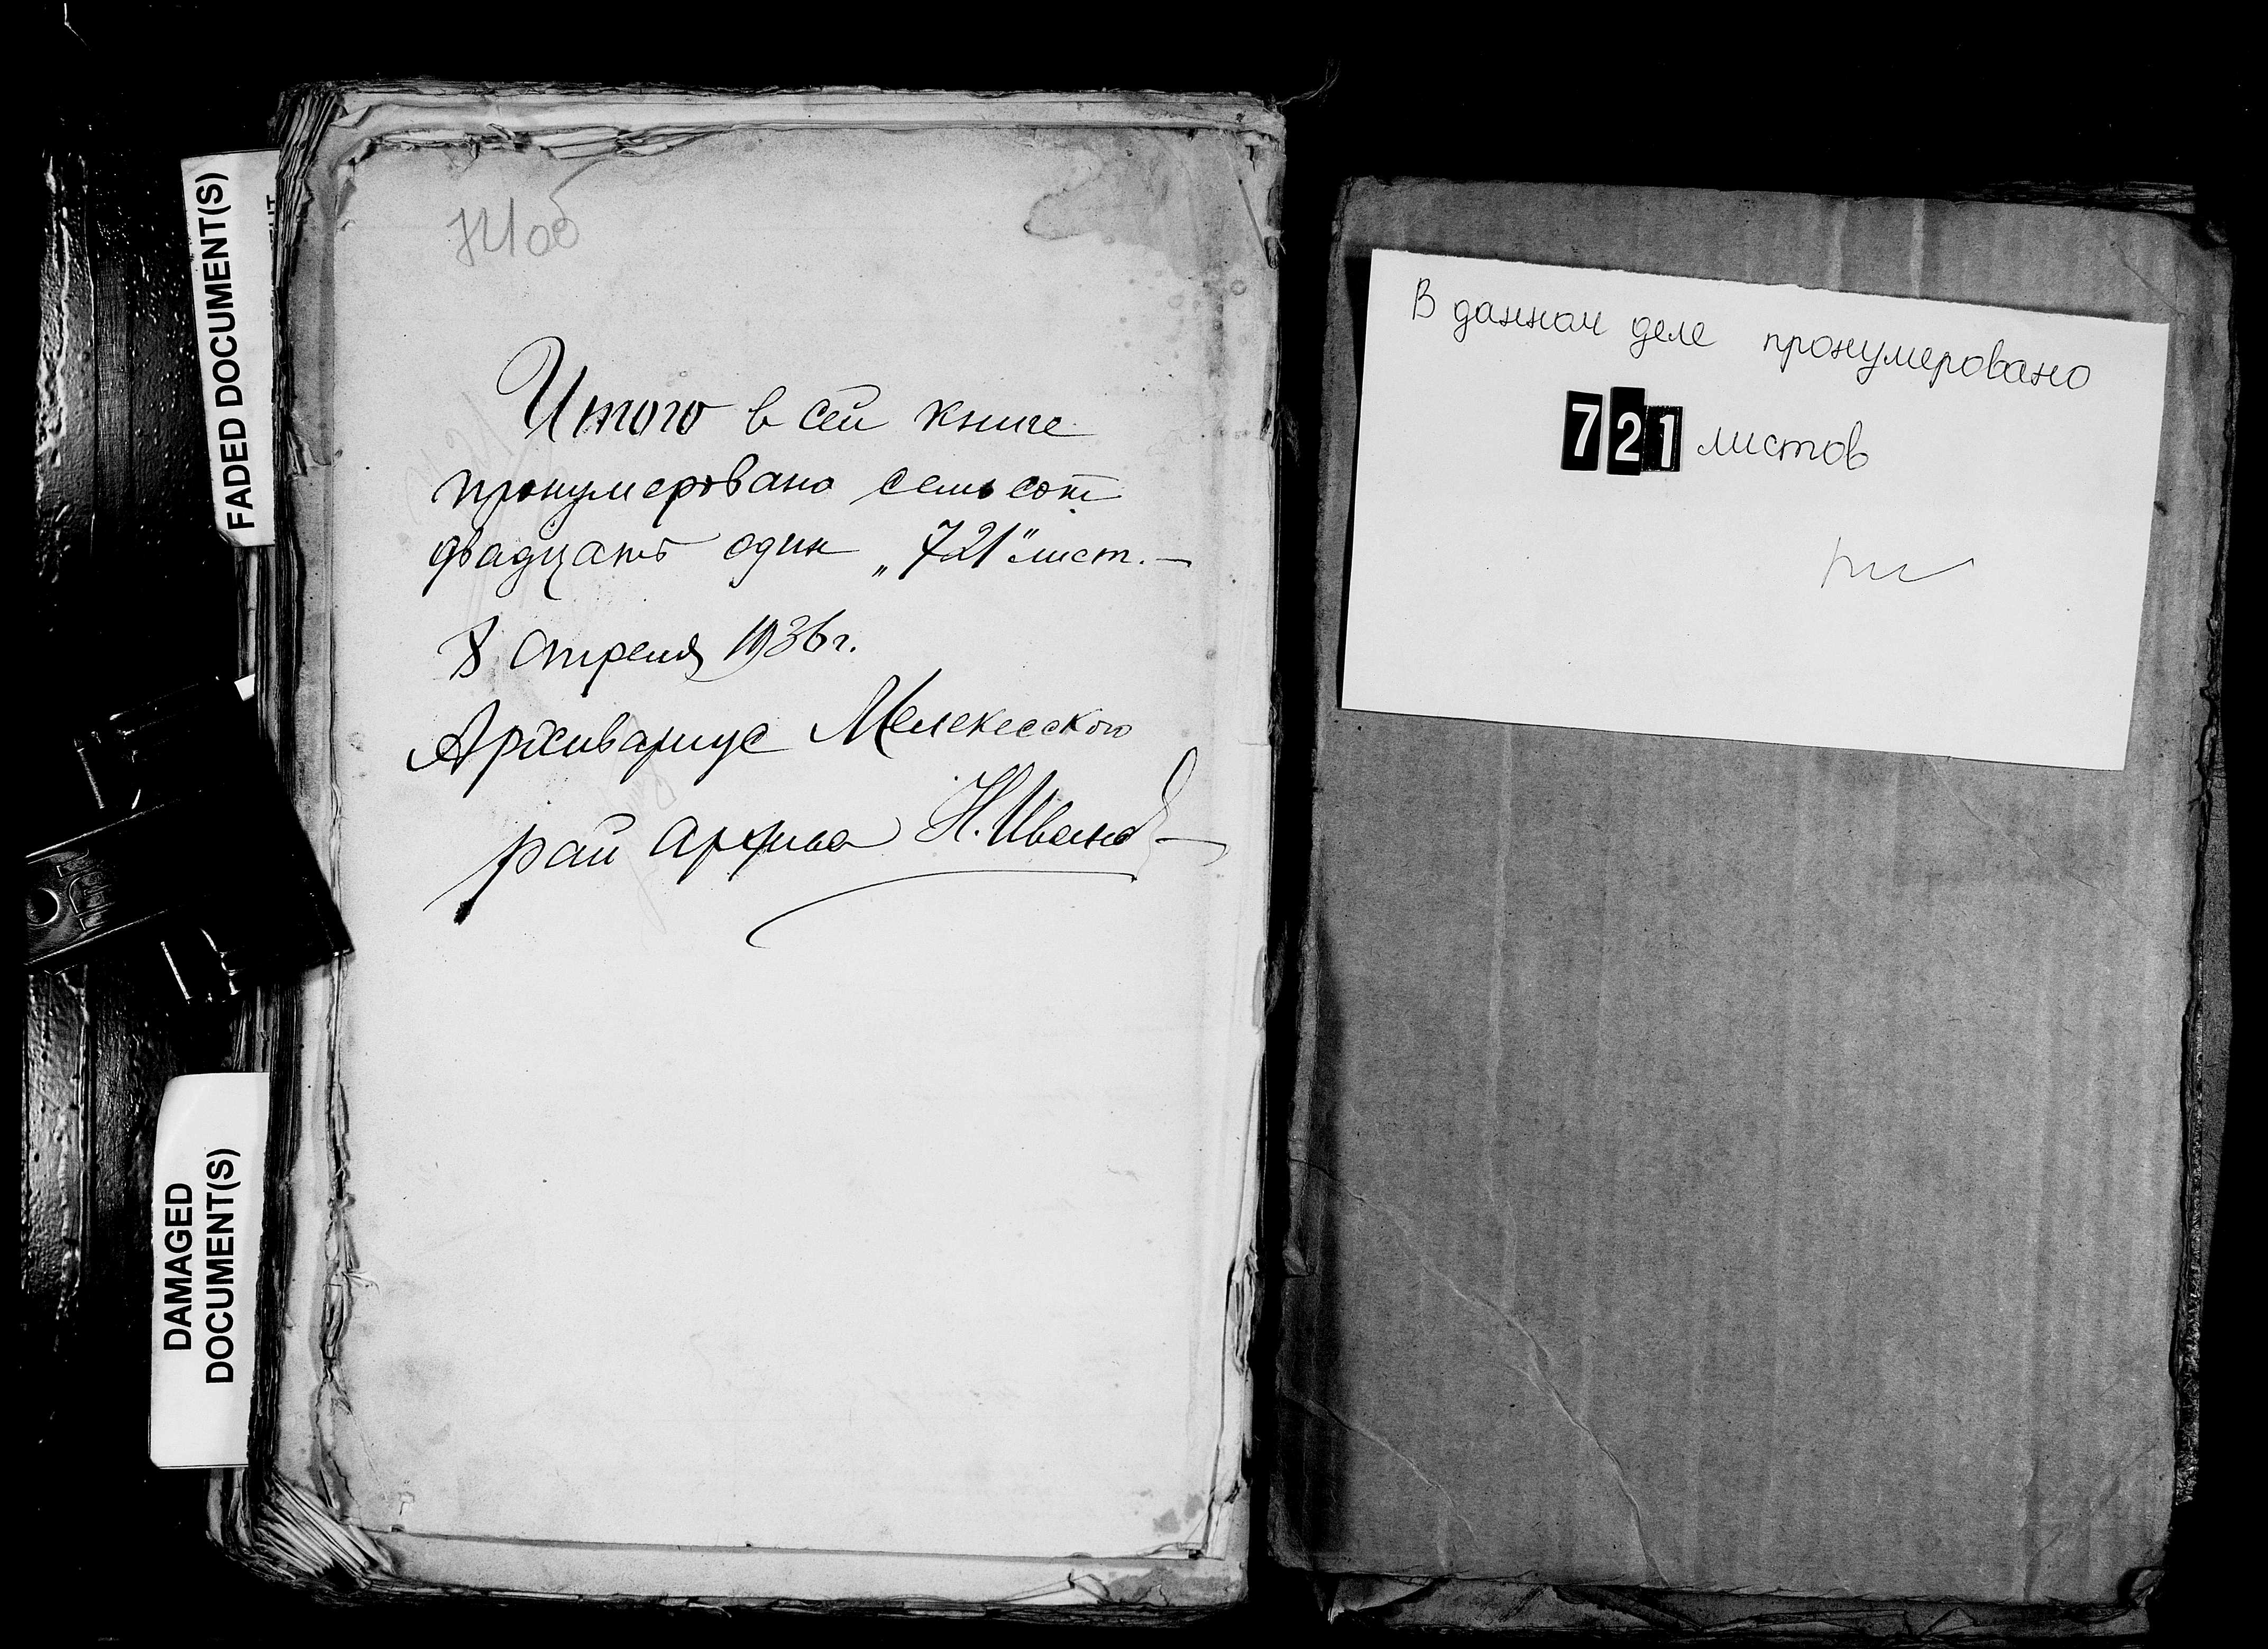 FADED DOCUMENT(S)
DAMAGED
DOCUMENT(S)
Итого в сей книге
пронумеровано семьсот
двадцать один „721" лист. —
8 апреля 1936 г.
Архивариус Мелекесского
рай архива Н. Иванов
В данном деле пронумеровано
721 листов